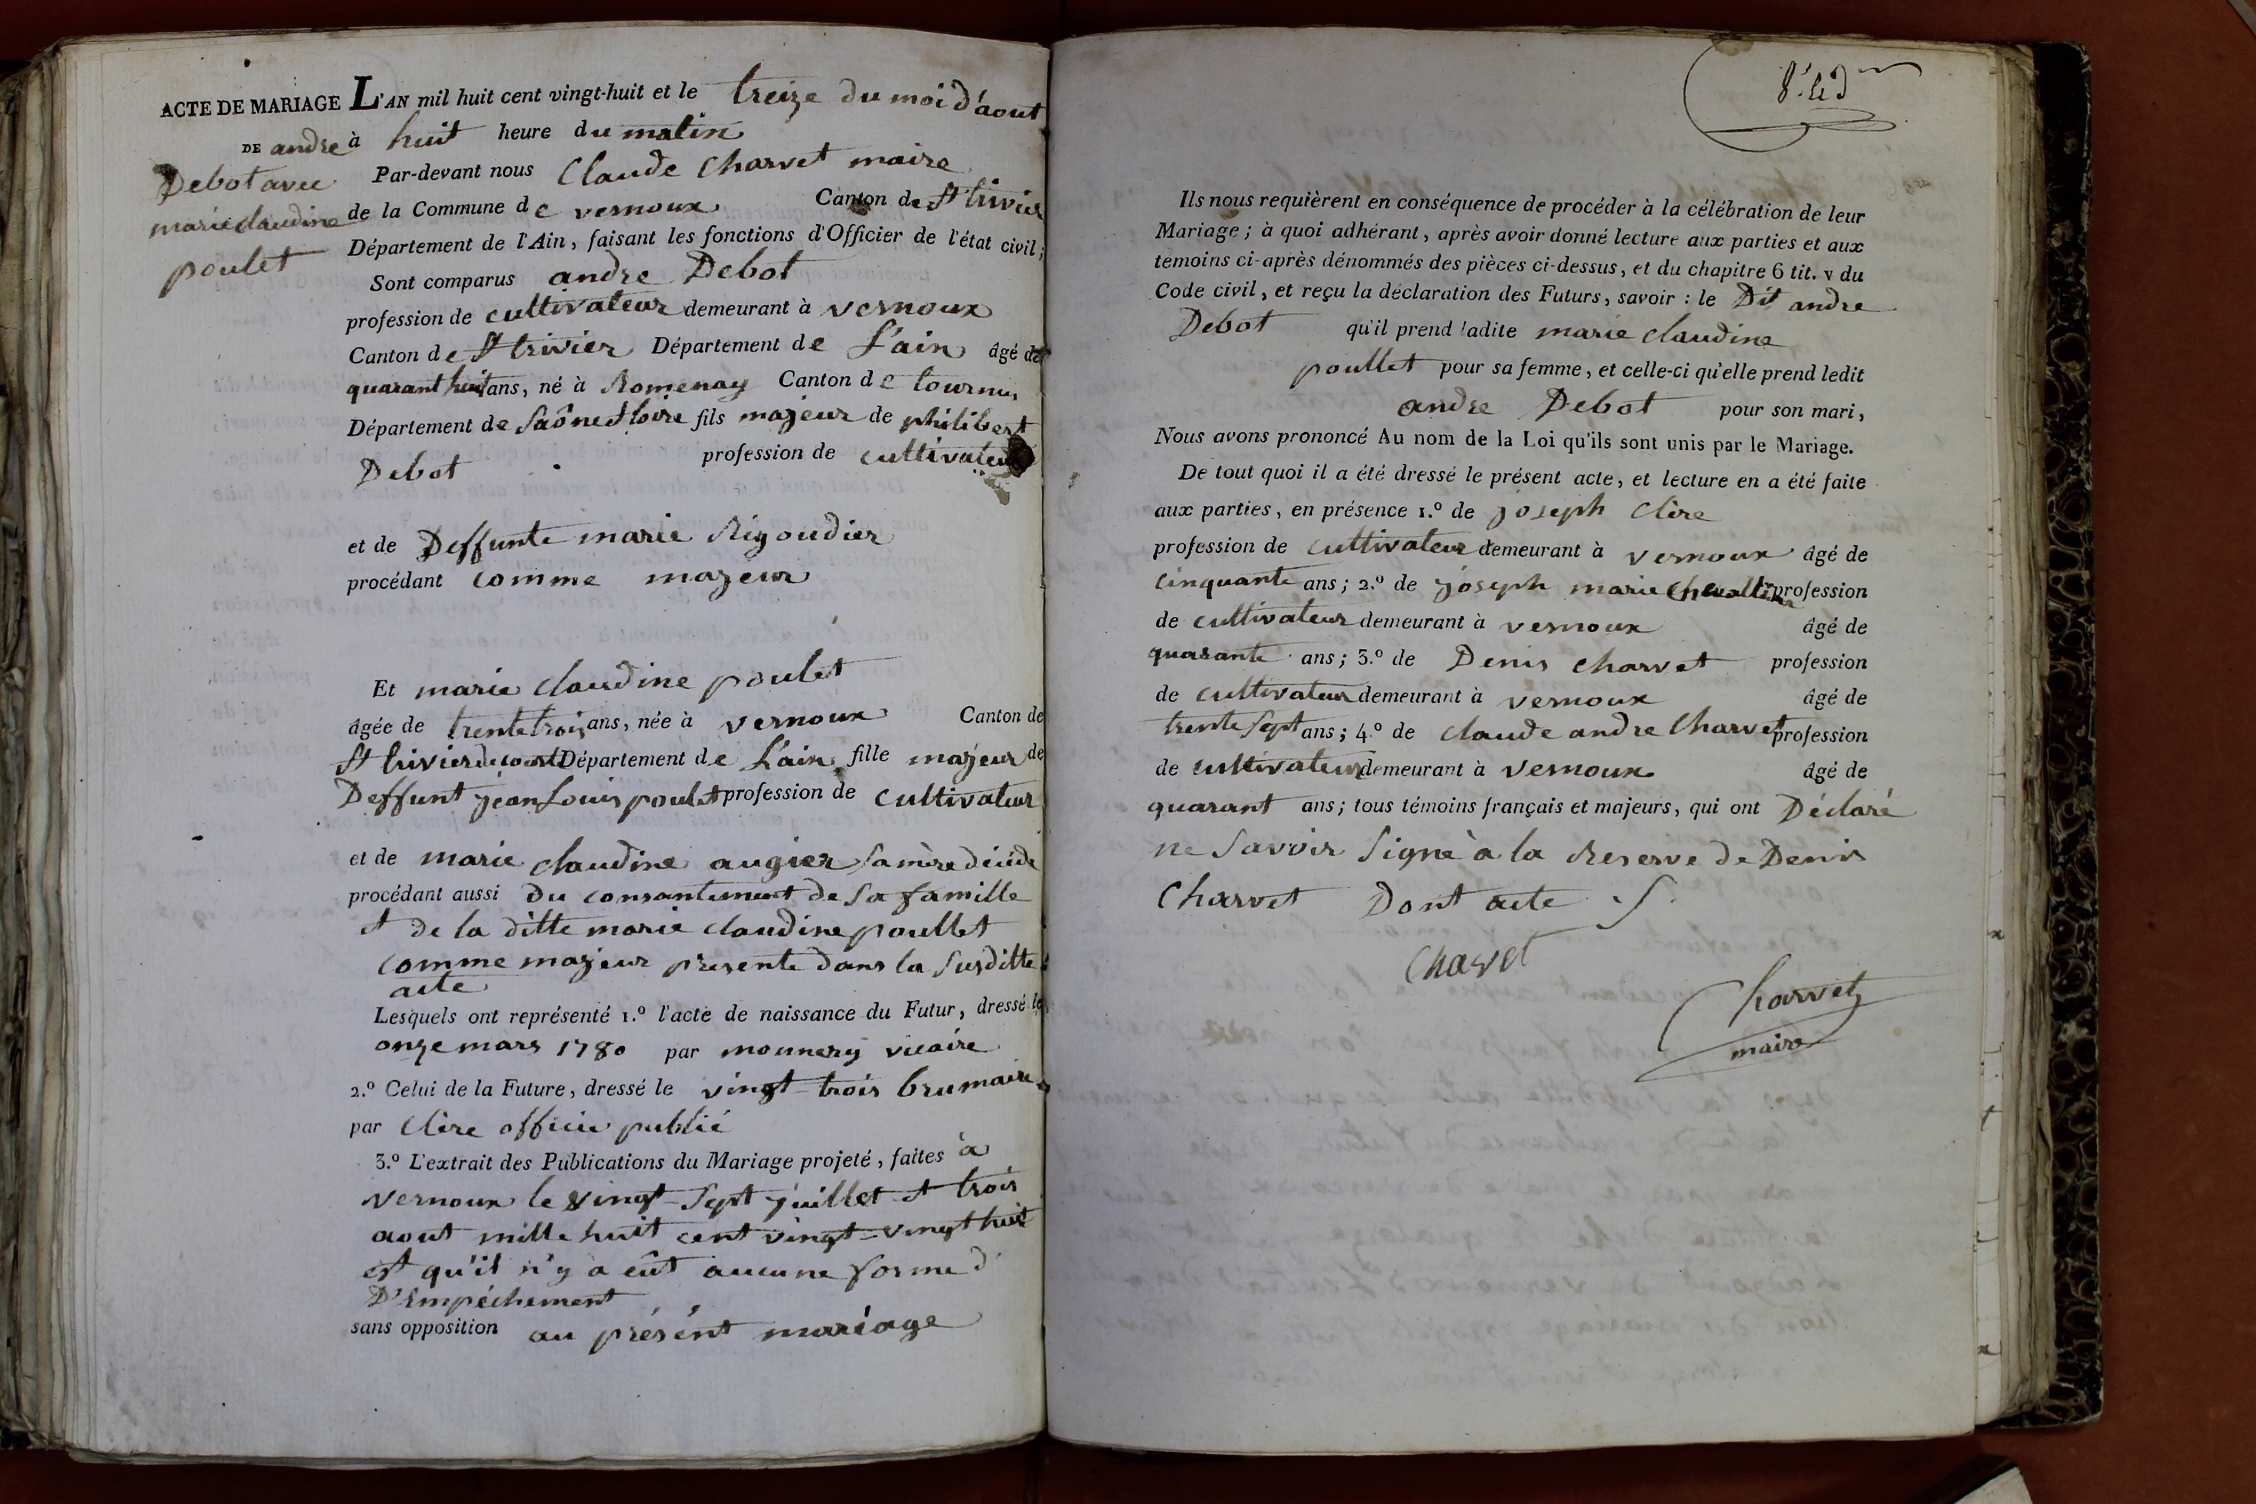 ACTE DE MARIAGE L'AN mil huit cent vingt-huit et le treize du moi d'aout
DE andre à huit heure du matin
Debot avec Par-devant nous Claude Charvet maire
marie claudine de la Commune de vernoux Canton de St trivier
poulet Département de l'Ain, faisant les fonctions d'Officier de l'état civil;
Sont comparus andre Debot
profession de cultivateur demeurant à vernoux
Canton de St trivier Département de L'ain âgé de
quarant huit ans, né à Romenay Canton de tournus
Département de Saône & loire fils majeur de philibert
Debot profession de cultivateur
et de Deffunte marie Rigoudier
procédant comme majeur
Et marie claudine poulet
âgée de trente trois ans, née à vernoux Canton de
St trivier de courtes Département de L'ain fille majeur de
Deffunt jean Louis poulet profession de cultivateur
et de marie claudine augier sa mère décédé
procédant aussi Du consantement de sa famille
et de la ditte marie claudine poullet
comme majeur presente dans la susditte
acte
Lesquels ont représenté 1.º l'acte de naissance du Futur, dressé le
onze mars 1780 par mounery vicaire
2.º Celui de la Future, dressé le vingt-trois brumaire
par Clere officie publié
3.º L'extrait des Publications du Mariage projeté, faites à
vernoux le vingt-sept juillet et trois
aout mille huit cent vingt-vingt huit
est qu'il n'y a eût aucune forme d
D'Empéchement
sans opposition au présent mariage
Ils nous requièrent en conséquence de procéder à la célébration de leur
Mariage; à quoi adhérant, après avoir donné lecture aux parties et aux
témoins ci-après dénommés des pièces ci-dessus, et du chapitre 6 tit. v du
Code civil, et reçu la déclaration des Futurs, savoir : le Dit andre
Debot qu'il prend ladite marie claudine
poullet pour sa femme, et celle-ci qu'elle prend ledit
andre Debot pour son mari,
Nous avons prononcé Au nom de la Loi qu'ils sont unis par le Mariage.
De tout quoi il a été dressé le présent acte, et lecture en a été faite
aux parties, en présence 1.º de joseph Clere
profession de cultivateur demeurant à vernoux âgé de
cinquante ans; 2.º de joseph marie Chevallier profession
de cultivateur demeurant à vernoux âgé de
quarante ans; 3.º de Denis Charvet profession
de cultivateur demeurant à vernoux âgé de
trente sept ans; 4.º de claude andre Charvet profession
de cultivateur demeurant à vernoux âgé de
quarant ans; tous témoins français et majeurs, qui ont Déclaré
ne Savoir Signe à la Reserve de Denis
Charvet Dont acte
Charvet
Charvet
maire